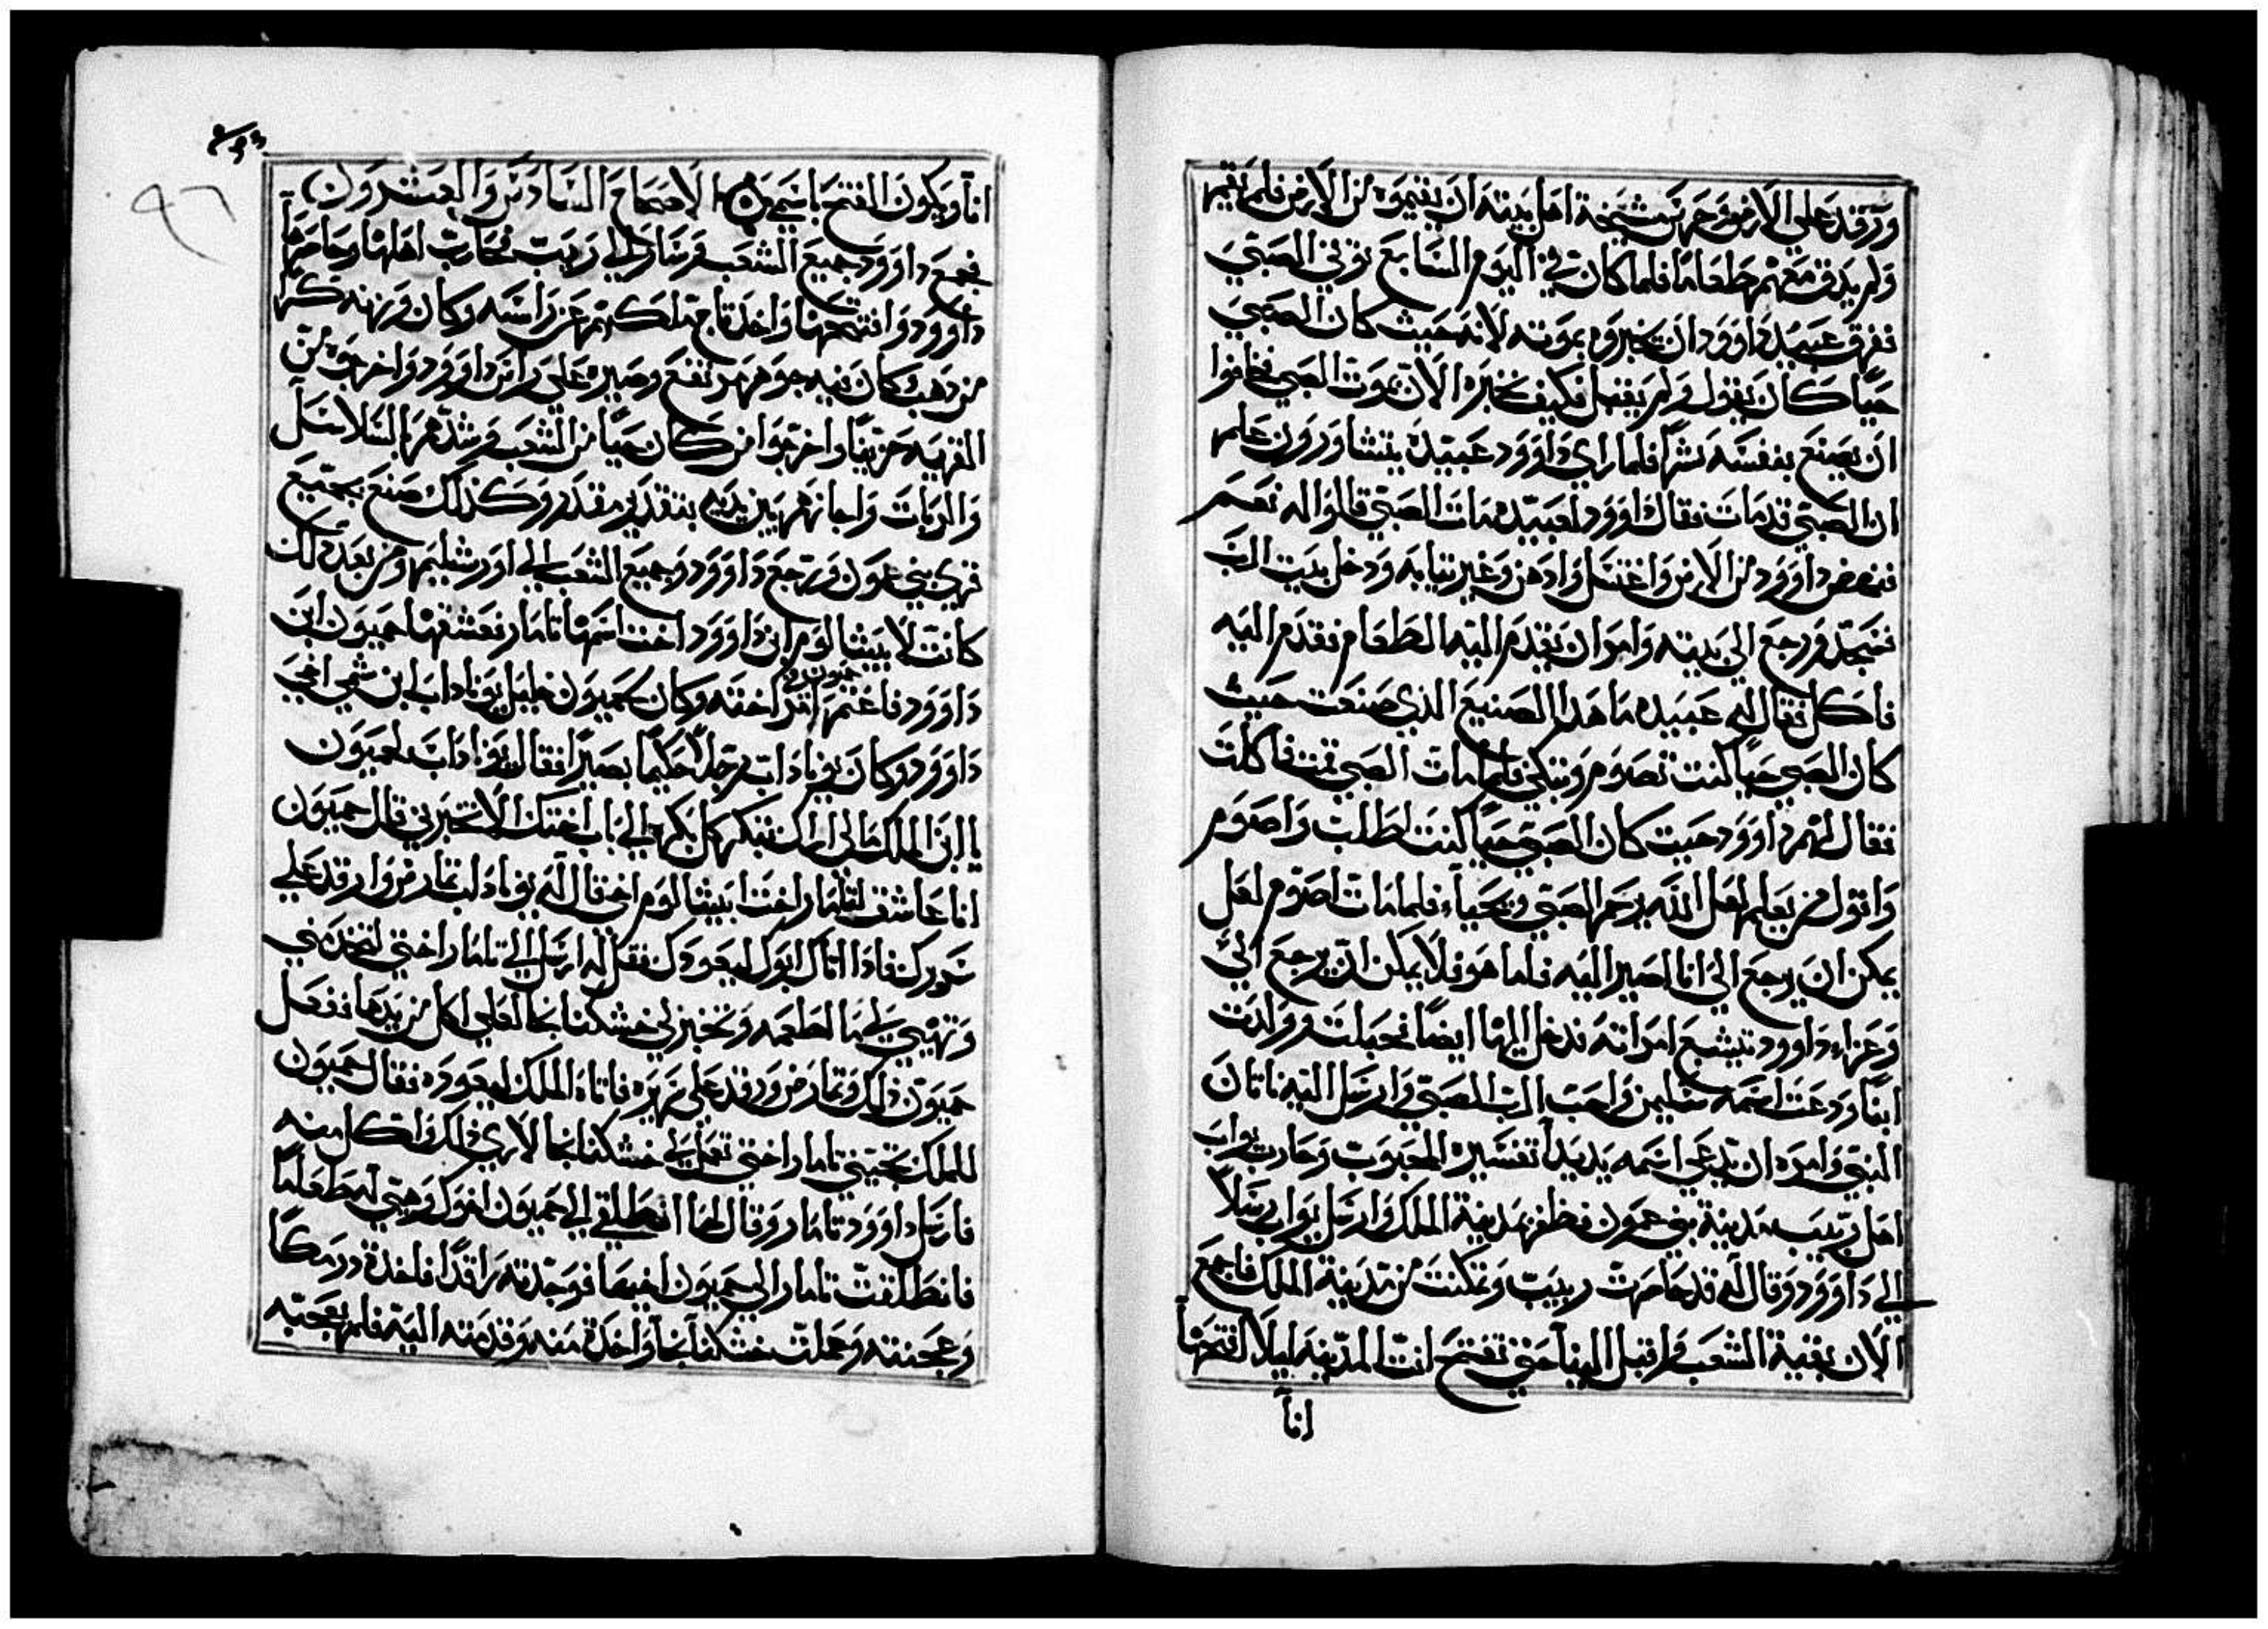 ورقد علي الارض فجهز مشيخة اهل بيته ان يقيموه من الارض فلم يقم
ولم يذق معهم طعاما فلما كان في اليوم السابع توفي الصبي
ففرق عبيد داوود ان يخبروه بموته لانه حيث كان الصبي
حيا كان يقول ولم يقبل فكيف نخبره الان بموت الصبي فخافوا
ان يصنع بنفسه شرا فلما راي داوود عبيده يتشاورون علم
ان الصبي قد مات فقال داوود لعبيده مات الصبي قالوا له نعم
فنهض داوود من الارض واغتسل وادهن وغير ثيابه ودخل بيت الرب
فسجد ورجع الي بيته وامر ان يقدم اليه الطعام فقدم اليه
فاكل فقال له عبيده ما هذا الصنيع الذي صنعت حيث
كان الصبي حيا كنت تصوم وتبكي فلما مات الصبي قمت فاكلت
فقال لهم داوود حيث كان الصبي حيا كنت اطلب واصوم
واقول من يعلم لعل الله يرحم الصبي ويحيا فلما مات اصوم لعل
يمكن ان يرجع الي انا اصير اليه فاما هو فلا يمكن ان يرجع الي
وعزا داوود بتشبع امراته فدخل اليها ايضا فحبلت وولدت
ابنا ودعت اسمه سليمن واحب الرب الصبي وارسل اليه ناتان
النبي وامره ان يدعي اسمه يديدا تفسيره المحبوب وحارب يواب
اهل ربيب مدينة بني عمون فظفر بمدينة الملك وارسل يواب رسلا
الي داوود وقال له قد حاصرت ربيب وتمكنت من مدينة الملك فاجمع
الان بقية الشعب واقبل الينا حتي تفتح انت المدينة ليلا افتحها
انا
انا ويكون الفتح باسمي الاصحاح السادس والعشرون
فجمع داوود جميع الشعب وسار الي ربيب فحارب اهلها وحاصرها
داوود وافتتحها واخذ تاج ملكهم عن راسه وكان وزنه كرا
من ذهب كان فيه جوهر مرتفع وصيره علي راس داوود واخرجوه من
القرية حزينا واخرجوا من كان حيا من الشعب وشدهم بالسلاسل
والربات واجازهم بين يديه بتقدير مقدر وكذلك صنع بجميع
قري بني عمون ورجع داوود وجميع الشعب الي اورشليم ومن بعد ذلك
كانت لابيشالوم ابن داوود اخت اسمها تامار فعشقها حميون ابن
داوود فاغتم حميون من امر اخته وكان لحميون خليل يوناداب ابن شمي اخي
داوود وكان يوناداب رجلا حكيما بصيرا فقال يوناداب لحميون
يا ابن الملك ما لي اراك تبتكر كل بكرة الي باب اختك الا تخبرني قال حميون
انا عاشق لتامار اخت ابيشالوم اخي قال له يوناداب تمارض وارقد علي
سريرك فاذا اتاك ابوك ليعودك فقل له ارسل الي تامار اختي لتخدمني
وتهيي لي ها لطعمه وتخبز لي خشكنانجا لعلي اكل من يدها ففعل
حميون ذلك وتمارض ورقد علي سريره فاتاه الملك ليعوده فقال حميون
للملك تجيني تامار اختي تعمل لي خشكنانجا لاري ذلك واكل منه
فارسل داوود تامار وقال لها انطلقي الي حميون اخوك وهيي له طعاما
فانطلقت تامار الي حميون اخيها فوجدته راقدا فاخذت درمكا
وعجنته وعملت خشكنانجا واخذت منه وقدمته اليه فلم يعجبه